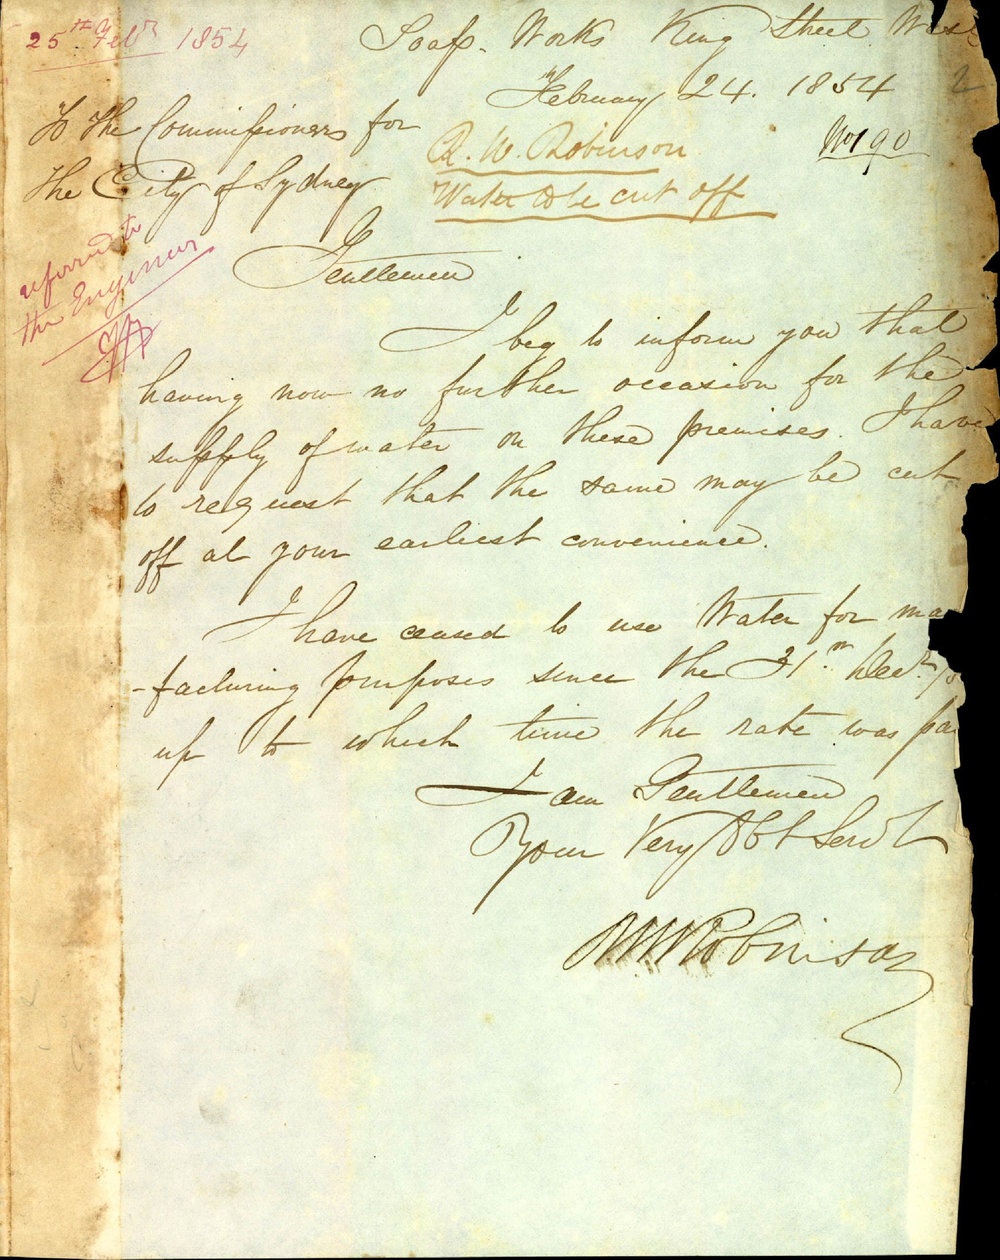 25th Feby 1854
Soap Works King Street West
February 24. 1854
To the Commissioners for
the City of Sydney
R. W. Robinson
Water to be cut off
No 190
2
referred to
the Engineer
Gentlemen
I beg to inform you that
having now no further occasion for the
supply of water on these premises. I have
to request that the same may be cut
off at your earliest convenience.
I have ceased to use Water for ma
-facturing purposes since the 31st Decr
up to which time the rate was pa
I am Gentlemen
Your Very Obt Servt
R W Robinson